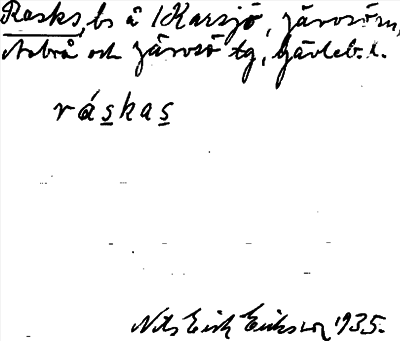 Rasks, bs å 1 Karsjö, Järvsö sn,
Arbrå och Järvsö tg, Gävleb. l.
ráskas
Nils Erik Eriksson 1935.